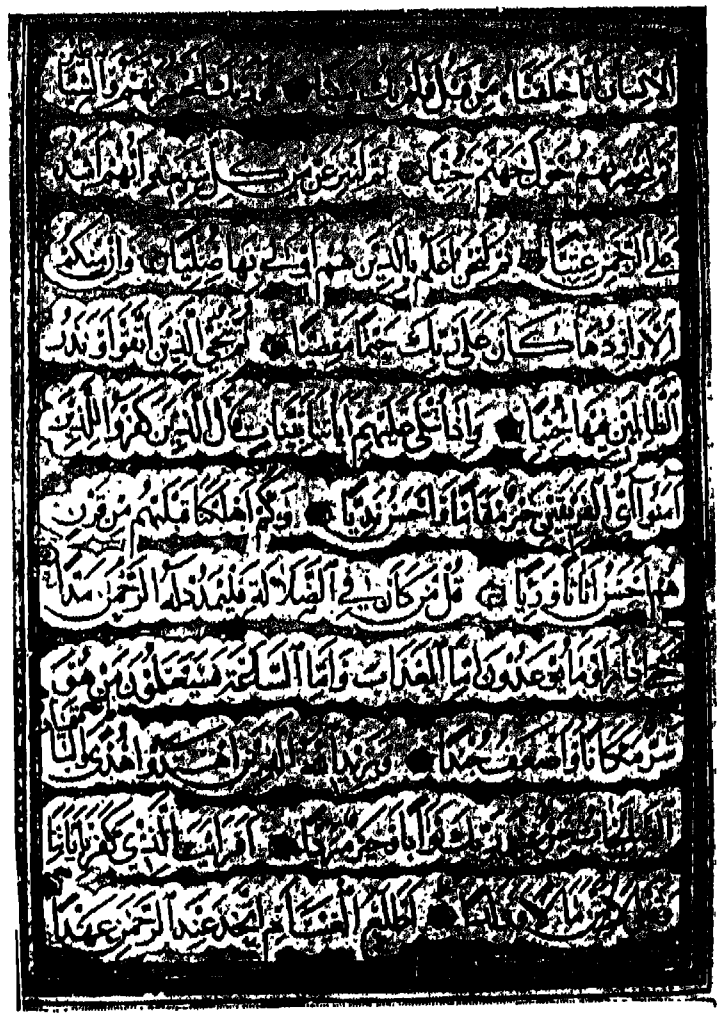 الانسان انا خلقناه من قبل ولم يك شيئا فوربك لنحشرنهم والشيا
لنحضرنهم حول جهنم جثيا ثم لننزعن من كل شيعة ايهم اشد
على الرحمن عتيا ثم لنحن اعلم بالذين هم اولى بها صليا وان منكم
الا واردها كان على ربك حتما مقضيا ثم ننجي الذين اتقوا ونذر
الظالمين فيها جثيا واذا تتلى عليهم اياتنا بينات قال الذين كفروا للذين
امنوا اي الفريقين خير مقاما واحسن نديا وكم اهلكنا قبلهم من قرن
هم احسن اثاثا ورئيا قل من كان في الضلالة فليمدد له الرحمن مدا
حتى اذا راوا ما يوعدون اما العذاب واما الساعة فسيعلمون من هو
شر مكانا واضعف جندا ويزيد الله الذين اهتدوا هدى والباقيا
الصالحات خير عند ربك ثوابا وخير مردا افرايت الذي كفر باياتنا
وقال لاوتين مالا وولدا اطلع الغيب ام اتخذ عند الرحمن عهدا